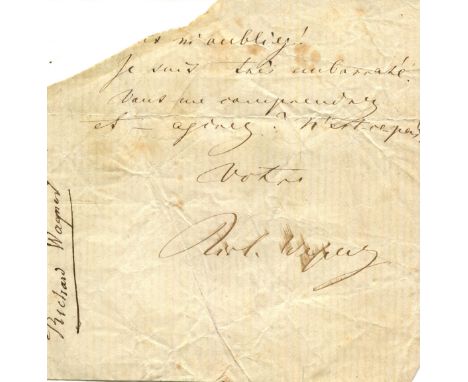 m'oublié!
Je suis très embarrassé.
Vous me comprendrez
et – agirez? N'est-ce pas?
Votre
Rich. Wagner
Richard Wagner